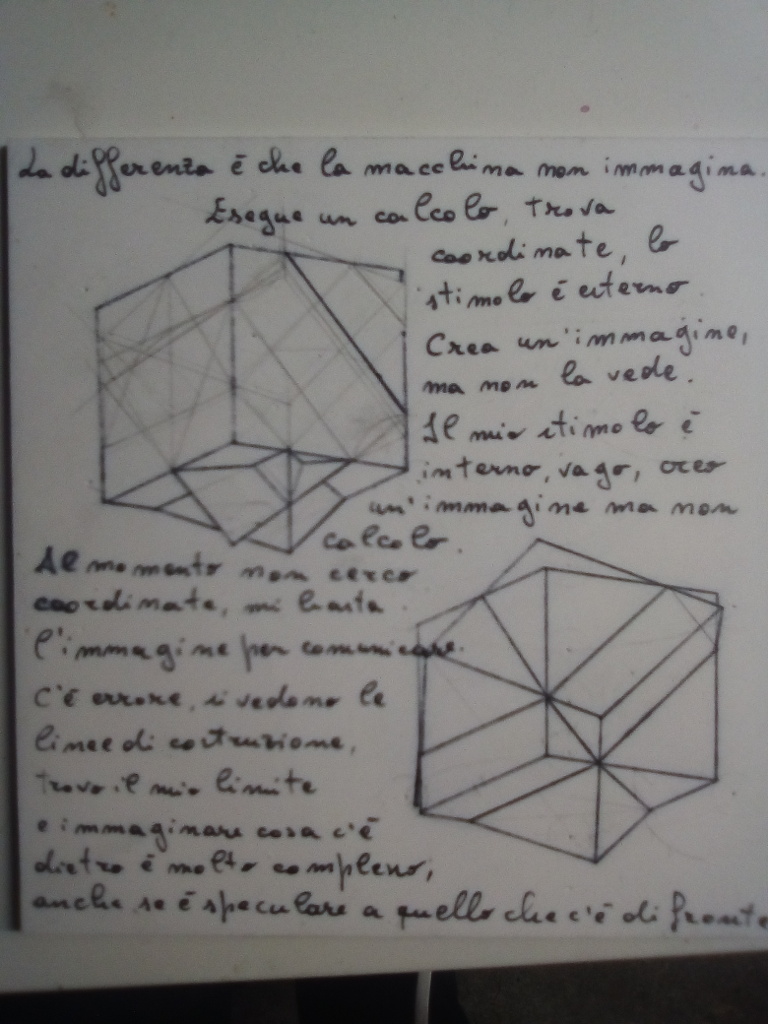 La differenza è che la macchina non immagina.
Esegue un calcolo, trova
coordinate, lo
stimolo è esterno.
Crea un'immagine,
ma non la vede.
Il mio stimolo è
interno, vago, creo
un'immagine ma non
calcolo.
Al momento non cerco
coordinate, mi basta
l'immagine per comunicare.
C'è errore, si vedono le
linee di costruzione,
trovo il mio limite
e immaginare cosa c'è
dietro è molto complesso,
anche se è speculare a quello che c'è di fronte